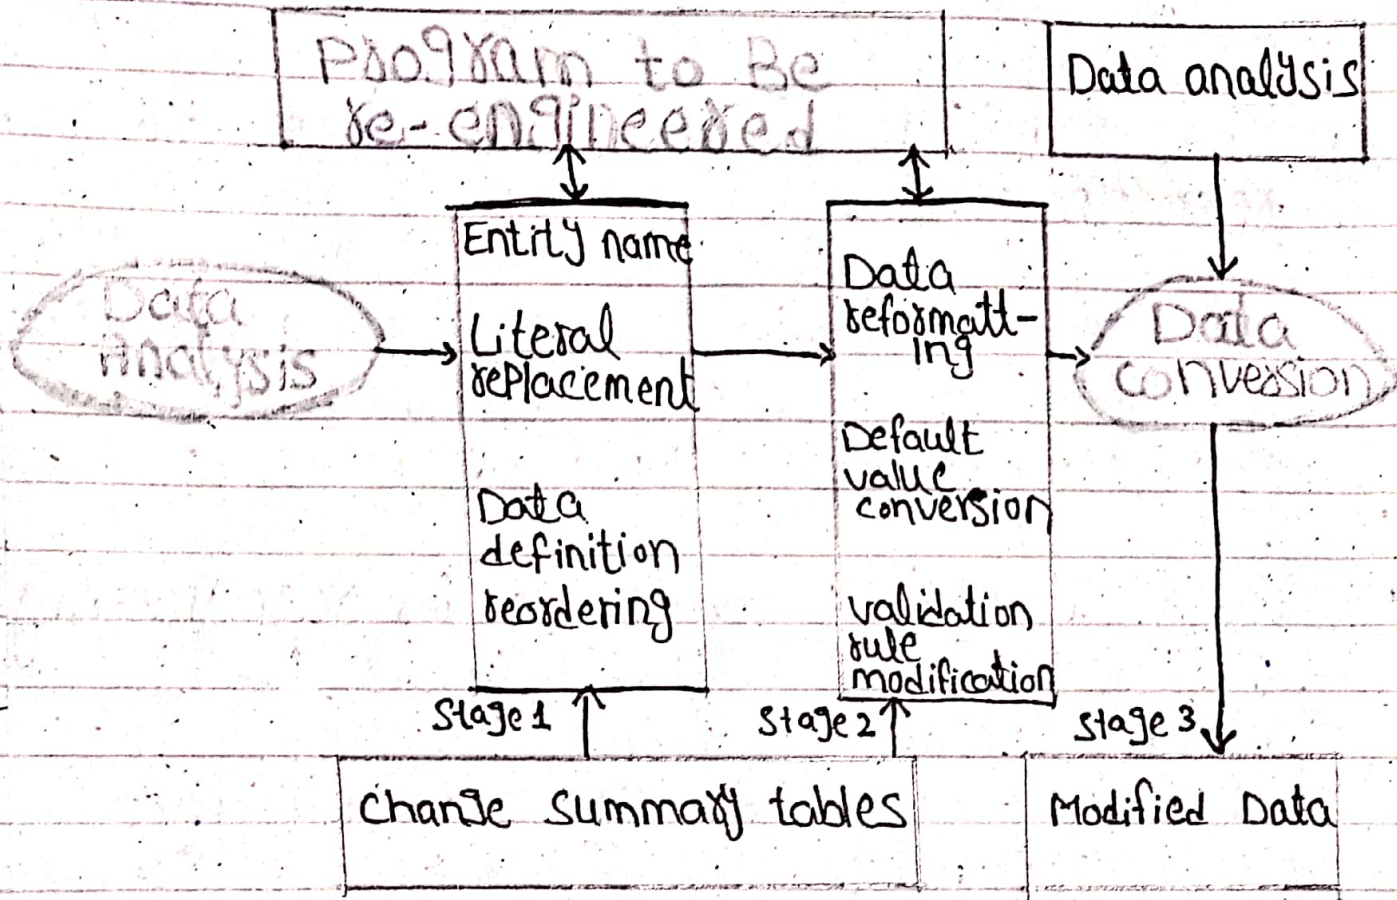 Program to Be
re-engineered
Data analysis
Data
Analysis
Entity name
Literal
replacement
Data
definition
reordering
Data
reformatt-
ing
Default
value
conversion
validation
rule
modification
Data
conversion
Stage 1
Stage 2
Stage 3
Change Summary tables
Modified Data